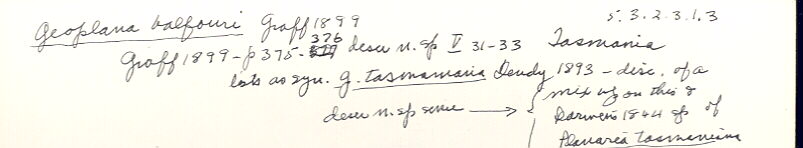 Geoplana balfouri Graff 1899 5.3.2.3.1.3
Graff 1899 - p 375 - 376 descr n. sp V 31-33 Tasmania
lists as syn. G. tasmaniana Dendy 1893 - disc. of a
mix up on this &
descr n. sp sense → Darwin's 1844 sp of
Planaria tasmaniana